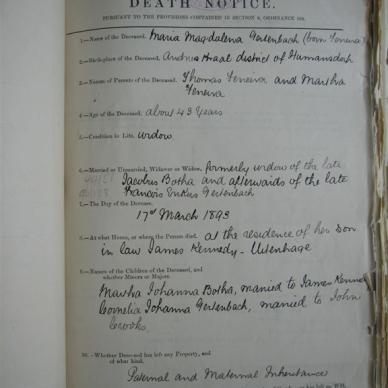 DEATH NOTICE.
PURSUANT TO THE PROVISIONS CONTAINED IN SECTION 9, ORDINANCE 104.
1.—Name of the Deceased. Maria Magdalena Gertenbach (born Fereira)
2.—Birth-place of the Deceased. Andries Kraal district of Humansdorp
3.—Names of Parents of the Deceased. Thomas Fereira and Martha
Fereira
4.—Age of the Deceased. about 43 Years
5.—Condition in Life. widow
6.—Married or Unmarried, Widower or Widow. formerly widow of the late
Jacobus Botha and afterwards of the late
Francois Gertenbach
7.—The Day of the Decease.
17th March 1893
8.—At what House, or where the Person died. at the residence of her Son
in law James Kennedy - Uitenhage
9.—Names of the Children of the Deceased, and
whether Minors or Majors.
Martha Johanna Botha, married to James Kennedy
Cornelia Johanna Gertenbach, married to John
10.—Whether Deceased has left any Property, and
of what kind.
Paternal and Maternal Inheritance